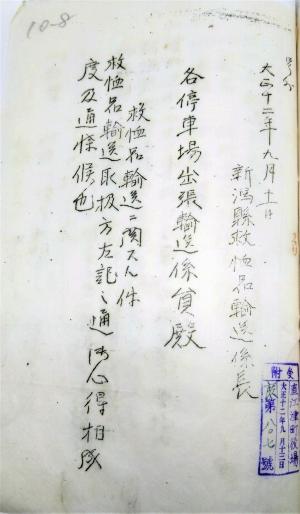 10-8
大正十二年九月十一日
新潟縣救恤品輸送係長
各停車場出張輸送係員殿
救恤品輸送ニ関スル件
救恤品輸送取扱方左記之通御心得相成
度及通牒候也
受附
直江津町役場
大正十二年九月十三日
第八〇七號